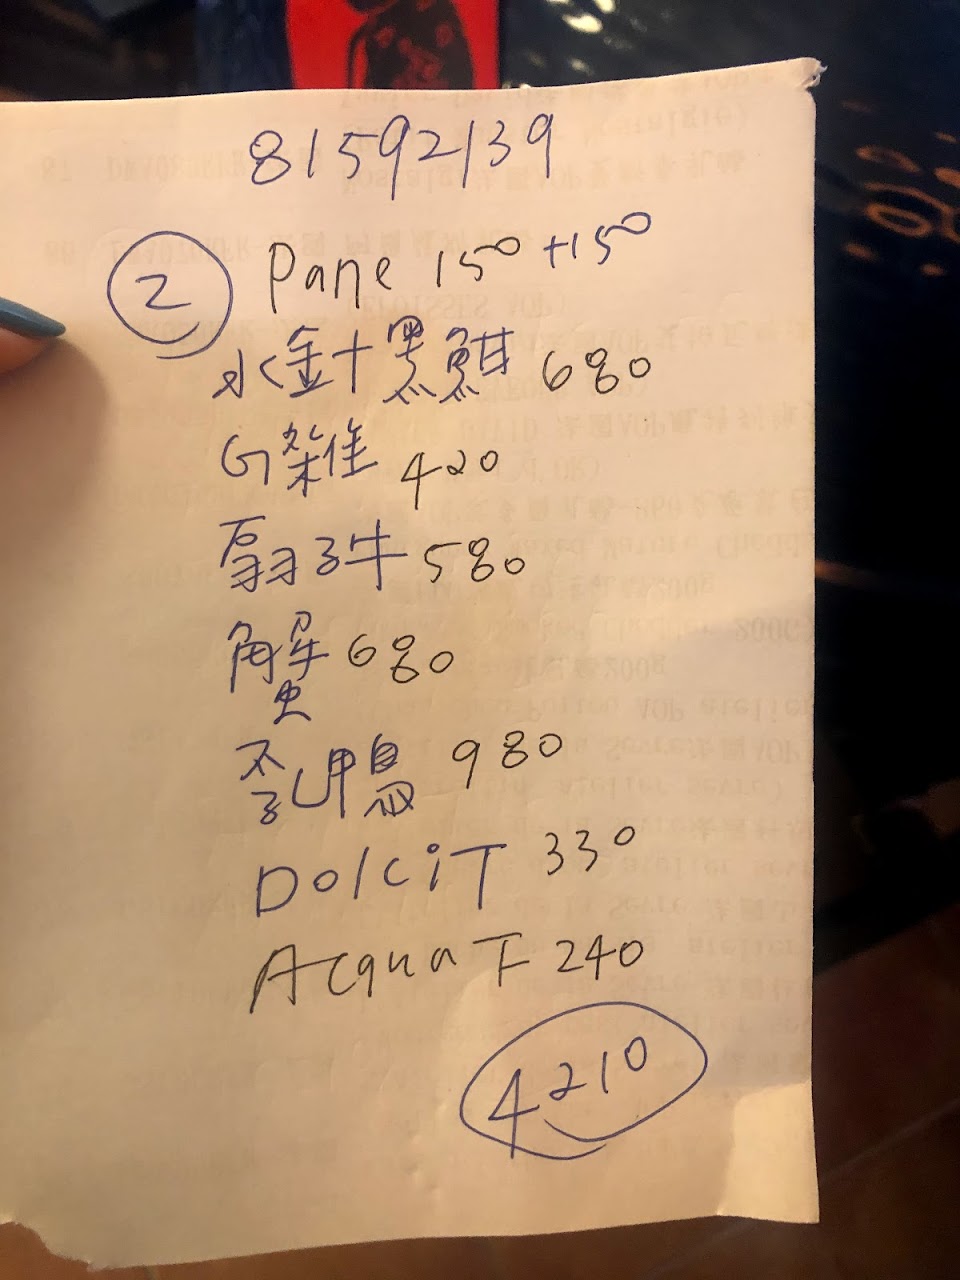 81592139
2 Pane 150+150
水金十黑魽 680
G雜 420
扇子牛 580
蟹 680
乳鴨 980
Dolci T 330
Acqua F 240
4210